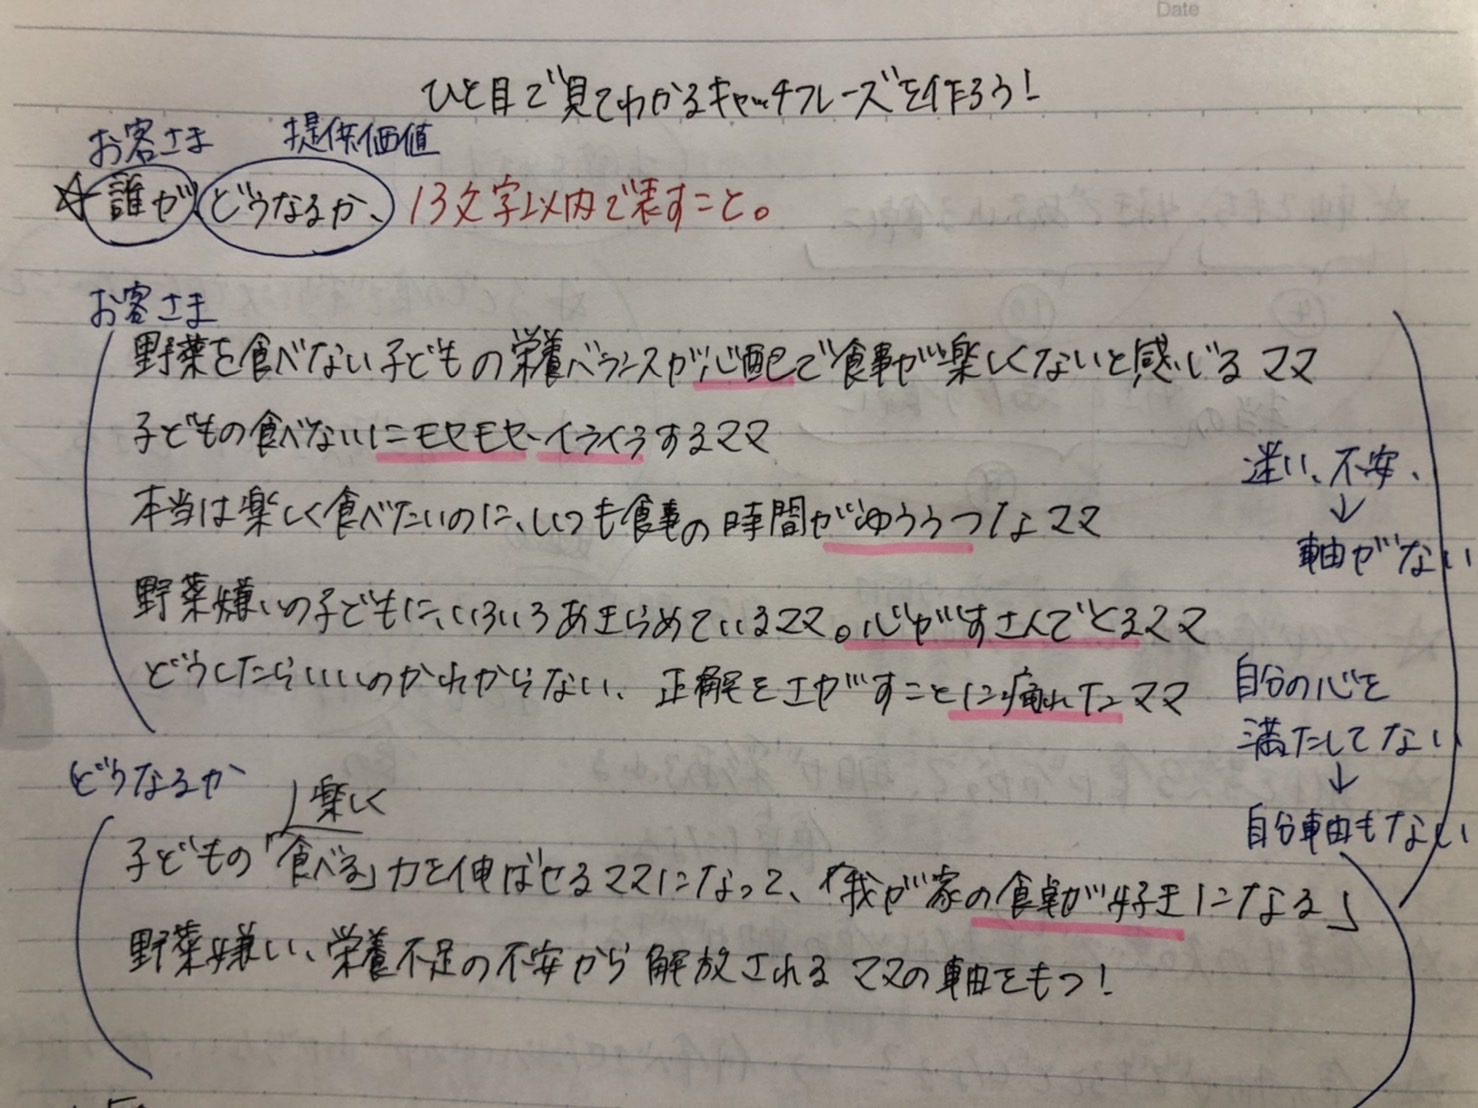 Date
ひと目で見てわかるキャッチフレーズを作ろう!
お客さま 提供価値
☆誰がどうなるか、13文字以内で表すこと。
お客さま
野菜を食べない子どもの栄養バランスが心配で食事が楽しくないと感じるママ
子どもの食べないにモヤモヤ・イライラするママ
本当は楽しく食べたいのに、いつも食事の時間がゆううつなママ
野菜嫌いの子どもに、いろいろあきらめているママ。心がすさんでとるママ
どうしたらいいのかわからない、正解をさがすことに疲れたママ
迷い、不安、
↓
軸がない
自分の心を
満たしてない
↓
自分軸もない
どうなるか
楽しく
子どもの「食べる」力を伸ばせるママになって、「我が家の食卓が好きになる」
野菜嫌い、栄養不足の不安から解放されるママの軸をもつ!